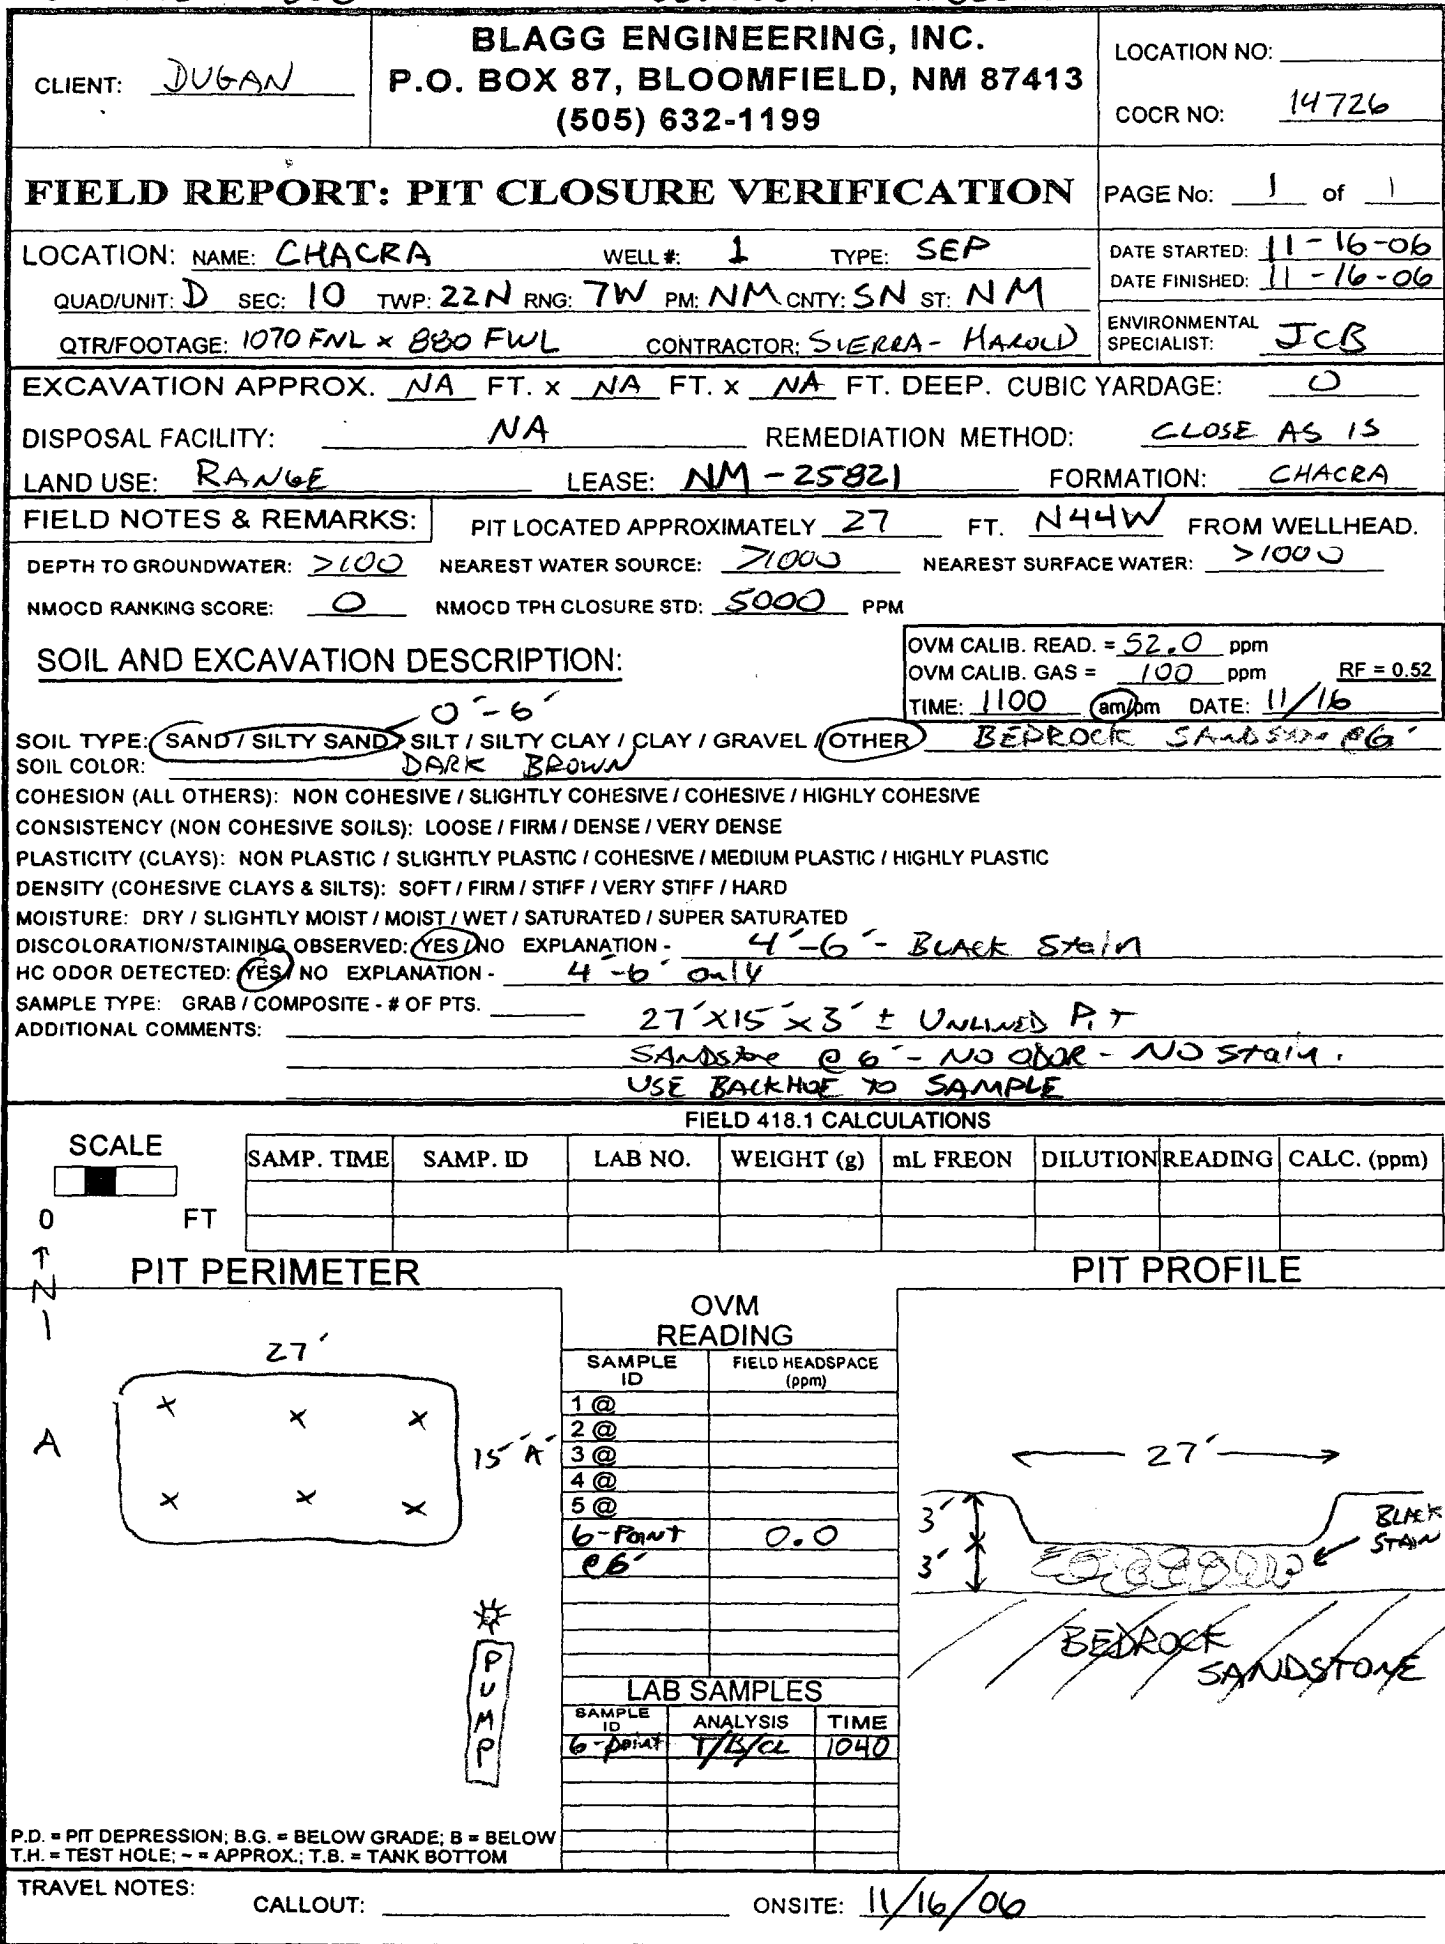 BLAGG ENGINEERING, INC.
CLIENT: DUGAN
P.O. BOX 87, BLOOMFIELD, NM 87413
(505) 632-1199
LOCATION NO:
COCR NO: 14726
FIELD REPORT: PIT CLOSURE VERIFICATION
PAGE No: 1 of 1
LOCATION: NAME: CHACRA WELL #: 1 TYPE: SEP
DATE STARTED: 11-16-06
DATE FINISHED: 11-16-06
QUAD/UNIT: D SEC: 10 TWP: 22N RNG: 7W PM: NM CNTY: SN ST: NM
QTR/FOOTAGE: 1070 FNL x 880 FWL CONTRACTOR: SIERRA - HAROLD
ENVIRONMENTAL SPECIALIST: JCB
EXCAVATION APPROX. NA FT. x NA FT. x NA FT. DEEP. CUBIC YARDAGE: 0
DISPOSAL FACILITY: NA REMEDIATION METHOD: CLOSE AS IS
LAND USE: RANGE LEASE: NM-25821 FORMATION: CHACRA
FIELD NOTES & REMARKS: PIT LOCATED APPROXIMATELY 27 FT. N44W FROM WELLHEAD.
DEPTH TO GROUNDWATER: >100 NEAREST WATER SOURCE: >1000 NEAREST SURFACE WATER: >1000
NMOCD RANKING SCORE: 0 NMOCD TPH CLOSURE STD: 5000 PPM
SOIL AND EXCAVATION DESCRIPTION:
OVM CALIB. READ. = 52.0 ppm
OVM CALIB. GAS = 100 ppm RF = 0.52
TIME: 1100 am/pm DATE: 11/16
0'-6'
SOIL TYPE: SAND / SILTY SAND / SILT / SILTY CLAY / CLAY / GRAVEL / OTHER BEDROCK SANDSTON @6'
SOIL COLOR: DARK BROWN
COHESION (ALL OTHERS): NON COHESIVE / SLIGHTLY COHESIVE / COHESIVE / HIGHLY COHESIVE
CONSISTENCY (NON COHESIVE SOILS): LOOSE / FIRM / DENSE / VERY DENSE
PLASTICITY (CLAYS): NON PLASTIC / SLIGHTLY PLASTIC / COHESIVE / MEDIUM PLASTIC / HIGHLY PLASTIC
DENSITY (COHESIVE CLAYS & SILTS): SOFT / FIRM / STIFF / VERY STIFF / HARD
MOISTURE: DRY / SLIGHTLY MOIST / MOIST / WET / SATURATED / SUPER SATURATED
DISCOLORATION/STAINING OBSERVED: YES / NO EXPLANATION - 4'-6' - BLACK Stain
HC ODOR DETECTED: YES / NO EXPLANATION - 4'-6' only
SAMPLE TYPE: GRAB / COMPOSITE - # OF PTS.
ADDITIONAL COMMENTS: 27'X15'x3' ± UNLINED PIT
SANDSTONE @ 6' - NO ODOR - NO Stain.
USE BACKHOE TO SAMPLE
FIELD 418.1 CALCULATIONS
SCALE
0 FT
SAMP. TIME SAMP. ID LAB NO. WEIGHT (g) mL FREON DILUTION READING CALC. (ppm)
N
PIT PERIMETER
27'
A
15' A'
PUMP
OVM READING
SAMPLE ID FIELD HEADSPACE (ppm)
1 @
2 @
3 @
4 @
5 @
6-POINT 0.0
@6'
LAB SAMPLES
SAMPLE ID ANALYSIS TIME
6-point T/B/CL 1040
PIT PROFILE
27'
3'
3'
BLACK STAIN
BEDROCK SANDSTONE
P.D. = PIT DEPRESSION; B.G. = BELOW GRADE; B = BELOW
T.H. = TEST HOLE; ~ = APPROX.; T.B. = TANK BOTTOM
TRAVEL NOTES:
CALLOUT: ONSITE: 11/16/06